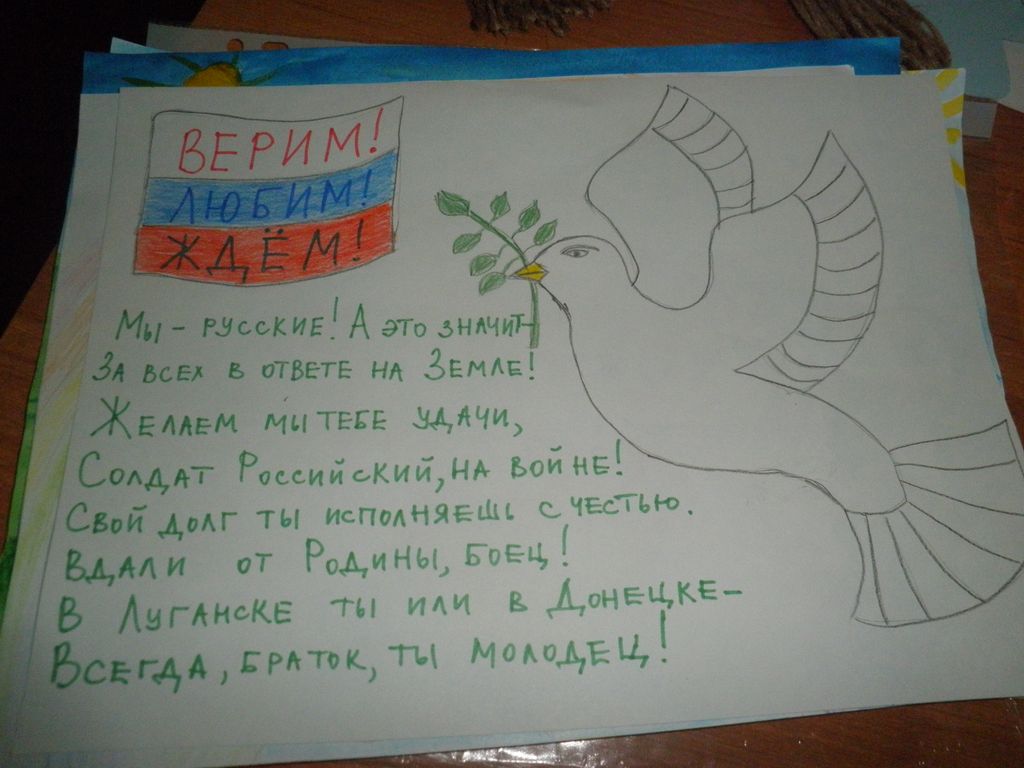 ВЕРИМ!
ЛЮБИМ!
ЖДЁМ!
Мы - русские! А это значит-
За всех в ответе на Земле!
Желаем мы тебе удачи,
Солдат Российский, на войне!
Свой долг ты исполняешь с честью.
Вдали от Родины, боец!
В Луганске ты или в Донецке-
Всегда, браток, ты молодец!